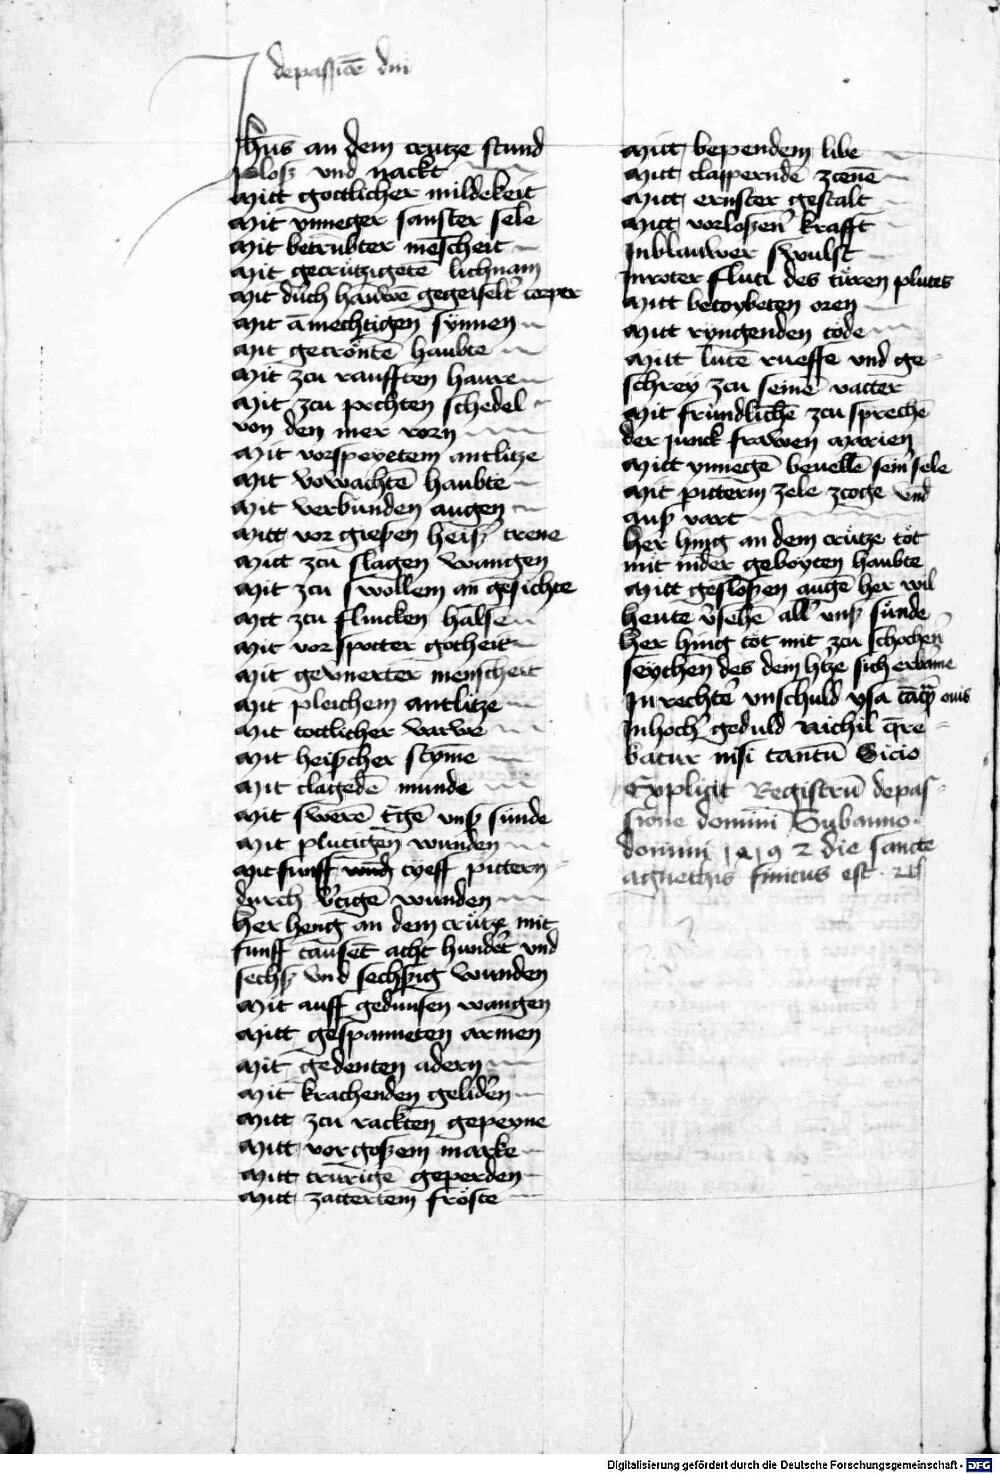 de passiōe dni
Jhūs an dem crutze stund
plosz vnd nackt
Mitt gottlicher mildekeit
Mit ynneger sanfter sele
Mit betrubter mēscheit
Mit gecrützigetē lichnam
Mit durch hauwē gegeiselt corper
Mit āmechtigen synnen
Mit gecrontē haubte
Mit zcu raufften haure
Mit zcu prchten schedel
von den mer rorn
Mit vorspeyetem antlitze
Mit haubte
Mit verbunden augen
Mitt vor giessen heisz trene
Mitt zcu slagen wangen
Mit zcu swollem an gesichte
Mit zcu flincken halse
Mit vor spotter gotheit
Mit gevnerter menscheit
Mit pleichem antlitze
Mit tottlicher varwe
Mit heischer stȳme
Mit clagedē munde
Mit swerē vnsz sunde
Mit plutigen wunden
Mit funff tyeff pittern
durch wunden
Her heng an dem crutze mit
funff tausēt acht hundert vnd
sechsz vnd sechszig wunden
Mit auff gedunsen wangen
Mitt gespanneten armen
Mit gedenten adern
Mit krachenden geliden
Mitt zcu rackten gepeyne
Mitt vor goszem marke
Mitt trurigē geperden
Mitt zattertem froste
Mitt bependem libe
Mitt clappernde zcene
Mitt ernster gestalt
Mitt vorloszen krafft
In blauwer swulst
In roter flut des turen plutes
Mitt betoybeten oren
Mitt ryngenden tode
Mitt lutē rueffe vnd ge
schrey zcu seinē vatter
Mit frundlichē zcu sprechē
der junck frawen Marien
Mitt ynnegē beuellē sein sele
Mit pitterm zele zcoge vnd
ausz vart
Her hing an dem crutze tot
mit nider geboyten haubte
Mitt gesloszen augē her wil
heute all vnsz sunde
Her hing tot mit zcu
seychen des dem sich erbarme
In rechtē vnschuld ovis
In hoch geduld Nichil
batur nisi tantū Sicio
Expligit Registrū de pas
sione domini Sub anno
domini 1492 die sancte
agnethis finitus est
Digitalisierung gefördert durch die Deutsche Forschungsgemeinschaft - DFG